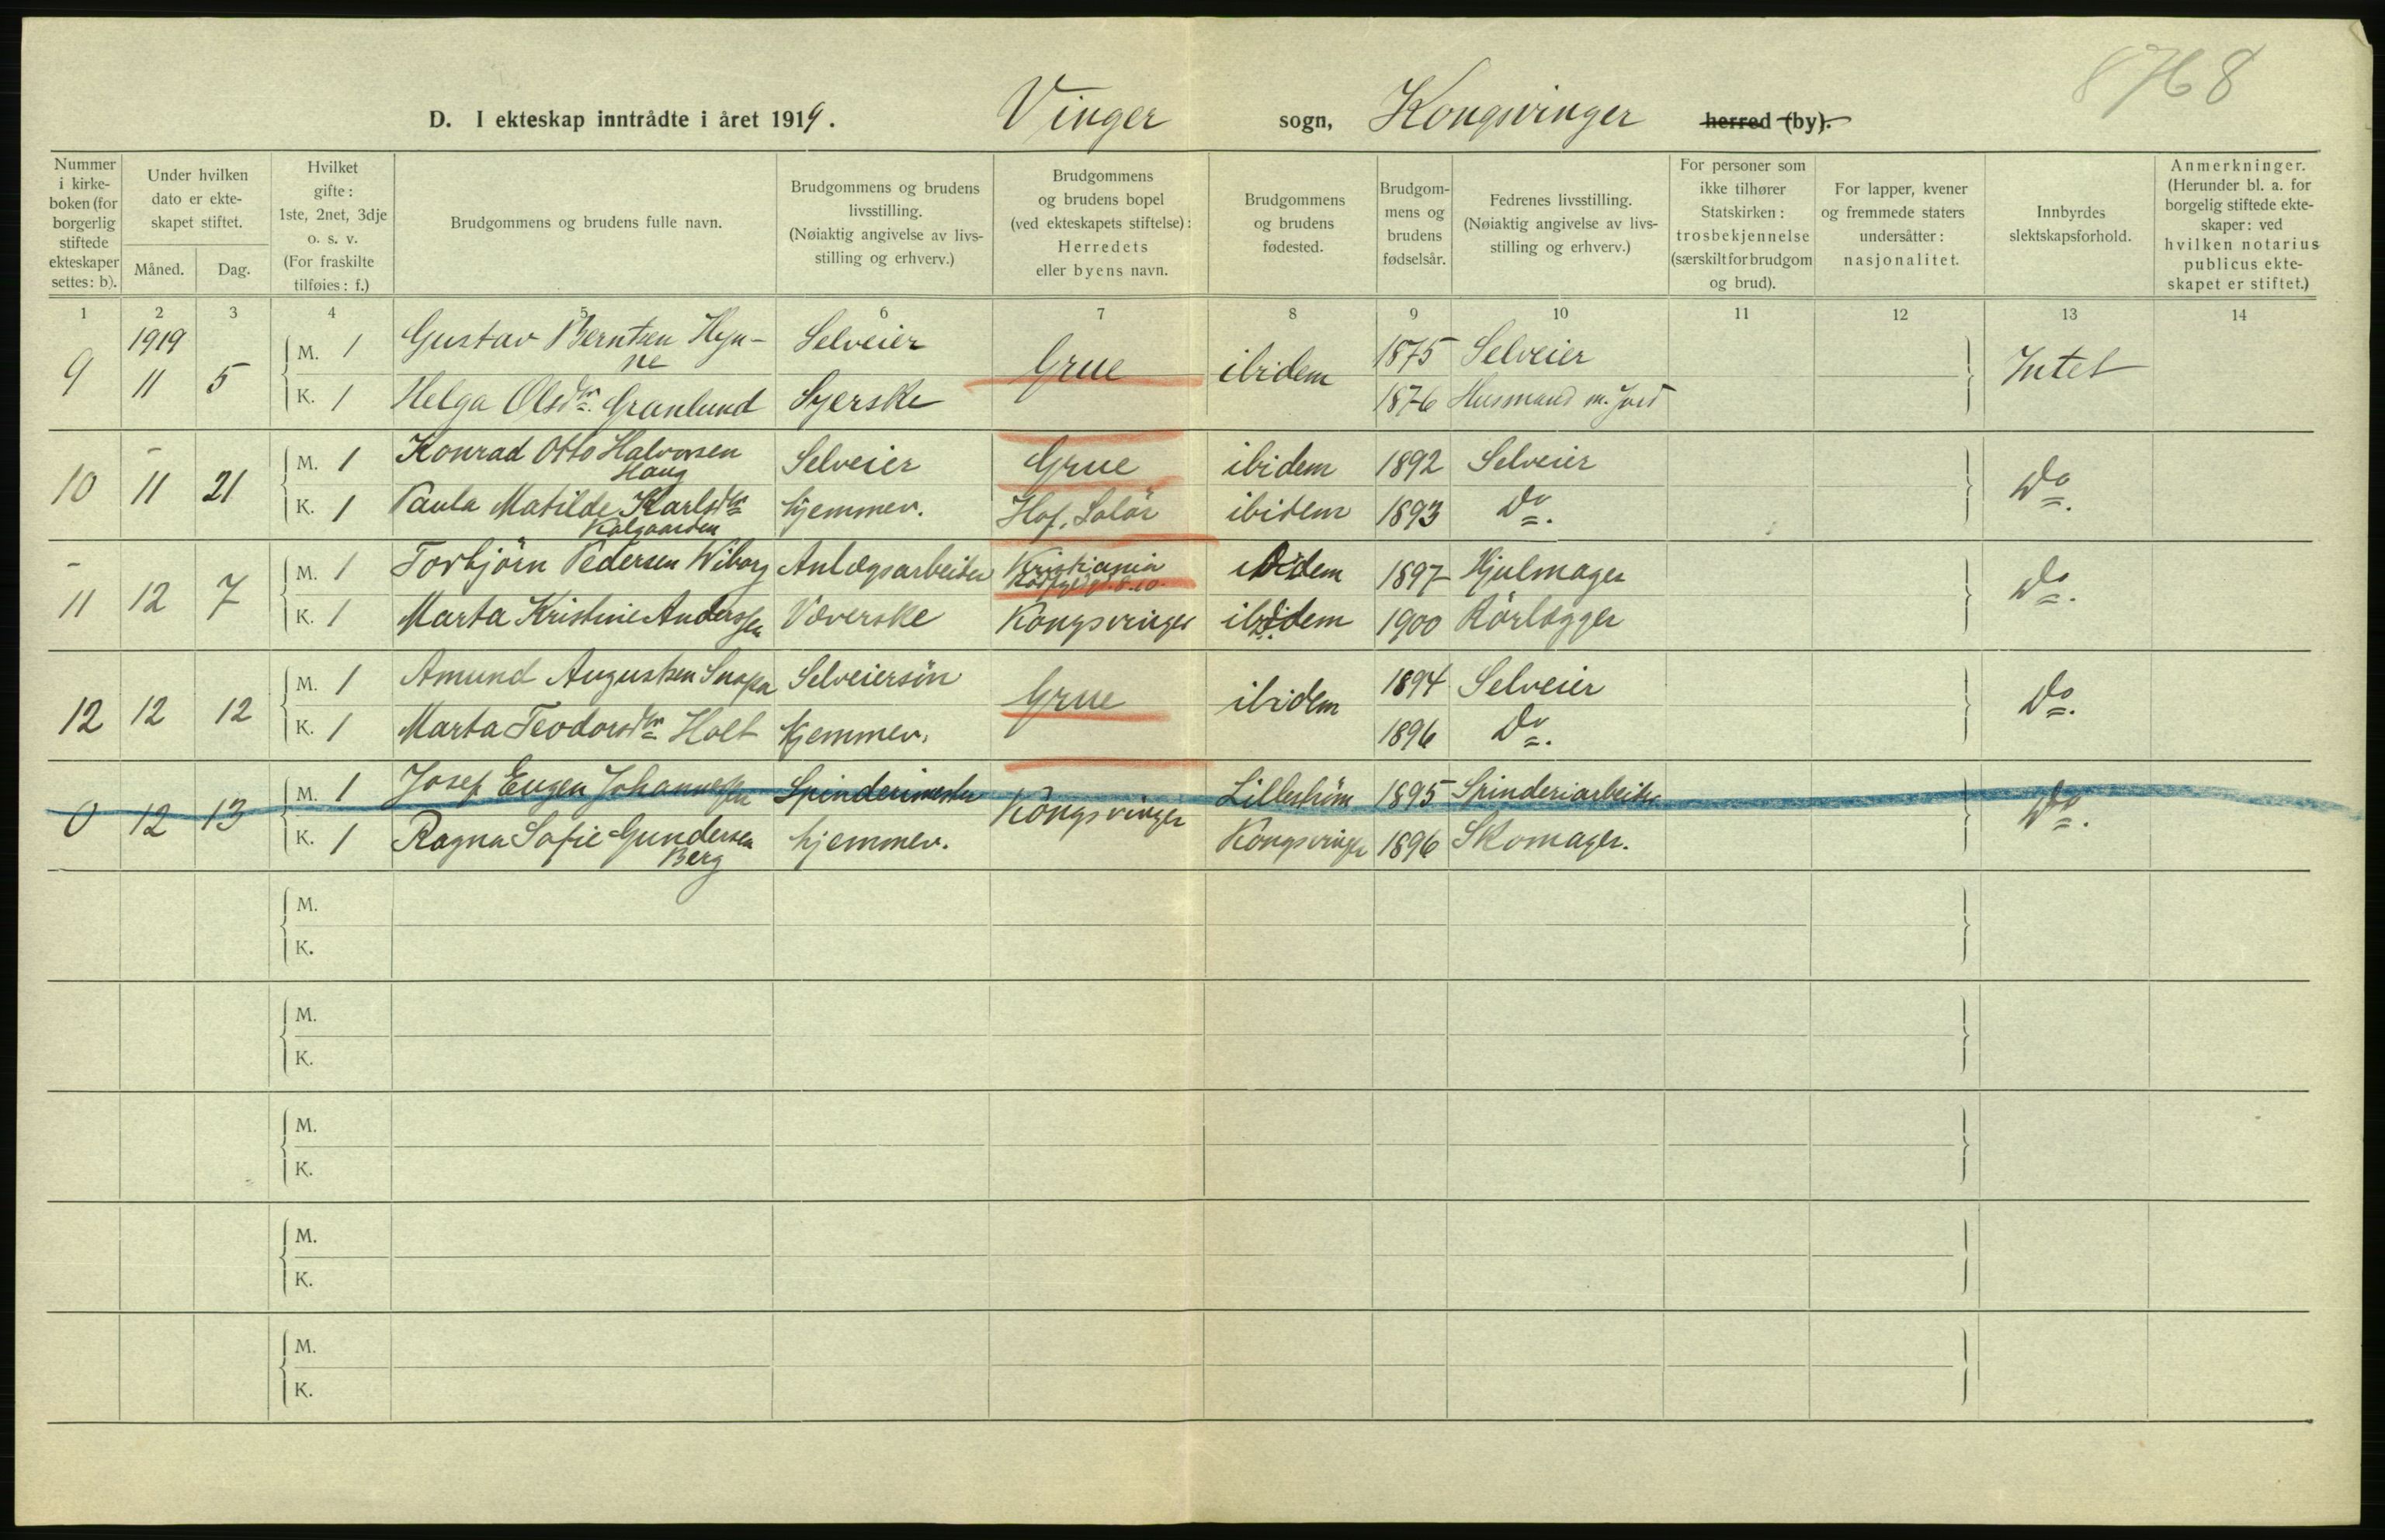 8768
D. I ekteskap inntrådte i året 1919. Vinger sogn, Kongsvinger herred (by).
Nummer i kirkeboken (for borgerlig stiftede ekteskaper settes: b).
Under hvilken dato er ekteskapet stiftet.
Måned. Dag.
Hvilket gifte: 1ste, 2net, 3dje o. s. v. (For fraskilte tilføies: f.)
Brudgommens og brudens fulle navn.
Brudgommens og brudens livsstilling. (Nøiaktig angivelse av livsstilling og erhverv.)
Brudgommens og brudens bopel (ved ekteskapets stiftelse): Herredets eller byens navn.
Brudgommens og brudens fødested.
Brudgommens og brudens fødselsår.
Fedrenes livsstilling. (Nøiaktig angivelse av livsstilling og erhverv.)
For personer som ikke tilhører Statskirken: trosbekjennelse (særskilt for brudgom og brud).
For lapper, kvener og fremmede staters undersåtter: nasjonalitet.
Innbyrdes slektskapsforhold.
Anmerkninger. (Herunder bl. a. for borgelig stiftede ekteskaper: ved hvilken notarius publicus ekteskapet er stiftet.)
1 2 3 4 5 6 7 8 9 10 11 12 13 14
1919
9 11 5 M. 1 Gustav Berntsen Hynne Selveier Grue ibidem 1875 Selveier Intet
K. 1 Helga Olsdtr. Granlund Syerske 1876 Husmand m. Jord
10 - 11 21 M. 1 Konrad Otto Halvorsen Haug Selveier Grue ibidem 1892 Selveier Do.
K. 1 Paula Matilde Karlsdtr Kalgaarden hjemmev. Hof, Solør ibidem 1893 Do.
11 12 7 M. 1 Torbjörn Pedersen Wiborg Anlægsarbeider Kristiania ibidem 1897 Hjulmager Do.
K. 1 Marta Kristine Anderssen Væverske Kongsvinger ibidem 1900 Rörlægger
12 12 12 M. 1 Amund Augustsen Selveiersön Grue ibidem 1894 Selveier Do.
K. 1 Marta Teodorsdtr Holt hjemmev. 1896 Do.
0 12 13 M. 1 Josef Eugen Johannessen Spinderimester Kongsvinger Lilleström 1895 Spinderiarbeider Do.
K. 1 Ragna Sofie Gundersen Berg hjemmev. Kongsvinger 1896 Skomager.
M.
K.
M.
K.
M.
K.
M.
K.
M.
K.